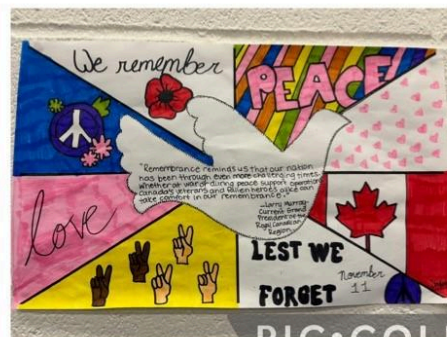 We remember
PEACE
"Remembrance reminds us that our nation
has been through even more challenging times.
Whether at war or during peace support operations
Canada's veterans and fallen heroes alike can
take comfort in our remembrance."
-Larry Murray
Current Grand
President of the
Royal Canadian
Region
love
LEST WE
FORGET
November
11
PIC•COL